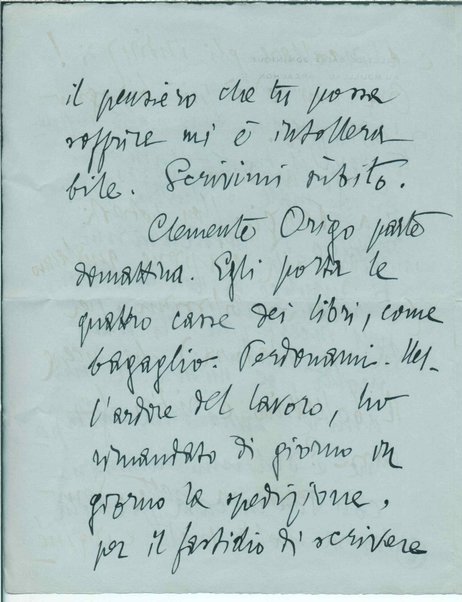 il pensiero che tu possa
soffrire mi è intollera
bile. Scrivimi sùbito.
Clemente Origo parte
domattina. Egli porta le
quattro casse dei libri, come
bagaglio. Perdonami. Nel-
l'ardore del lavoro, ho
rimandato di giorno in
giorno la spedizione,
per il fastidio di scrivere